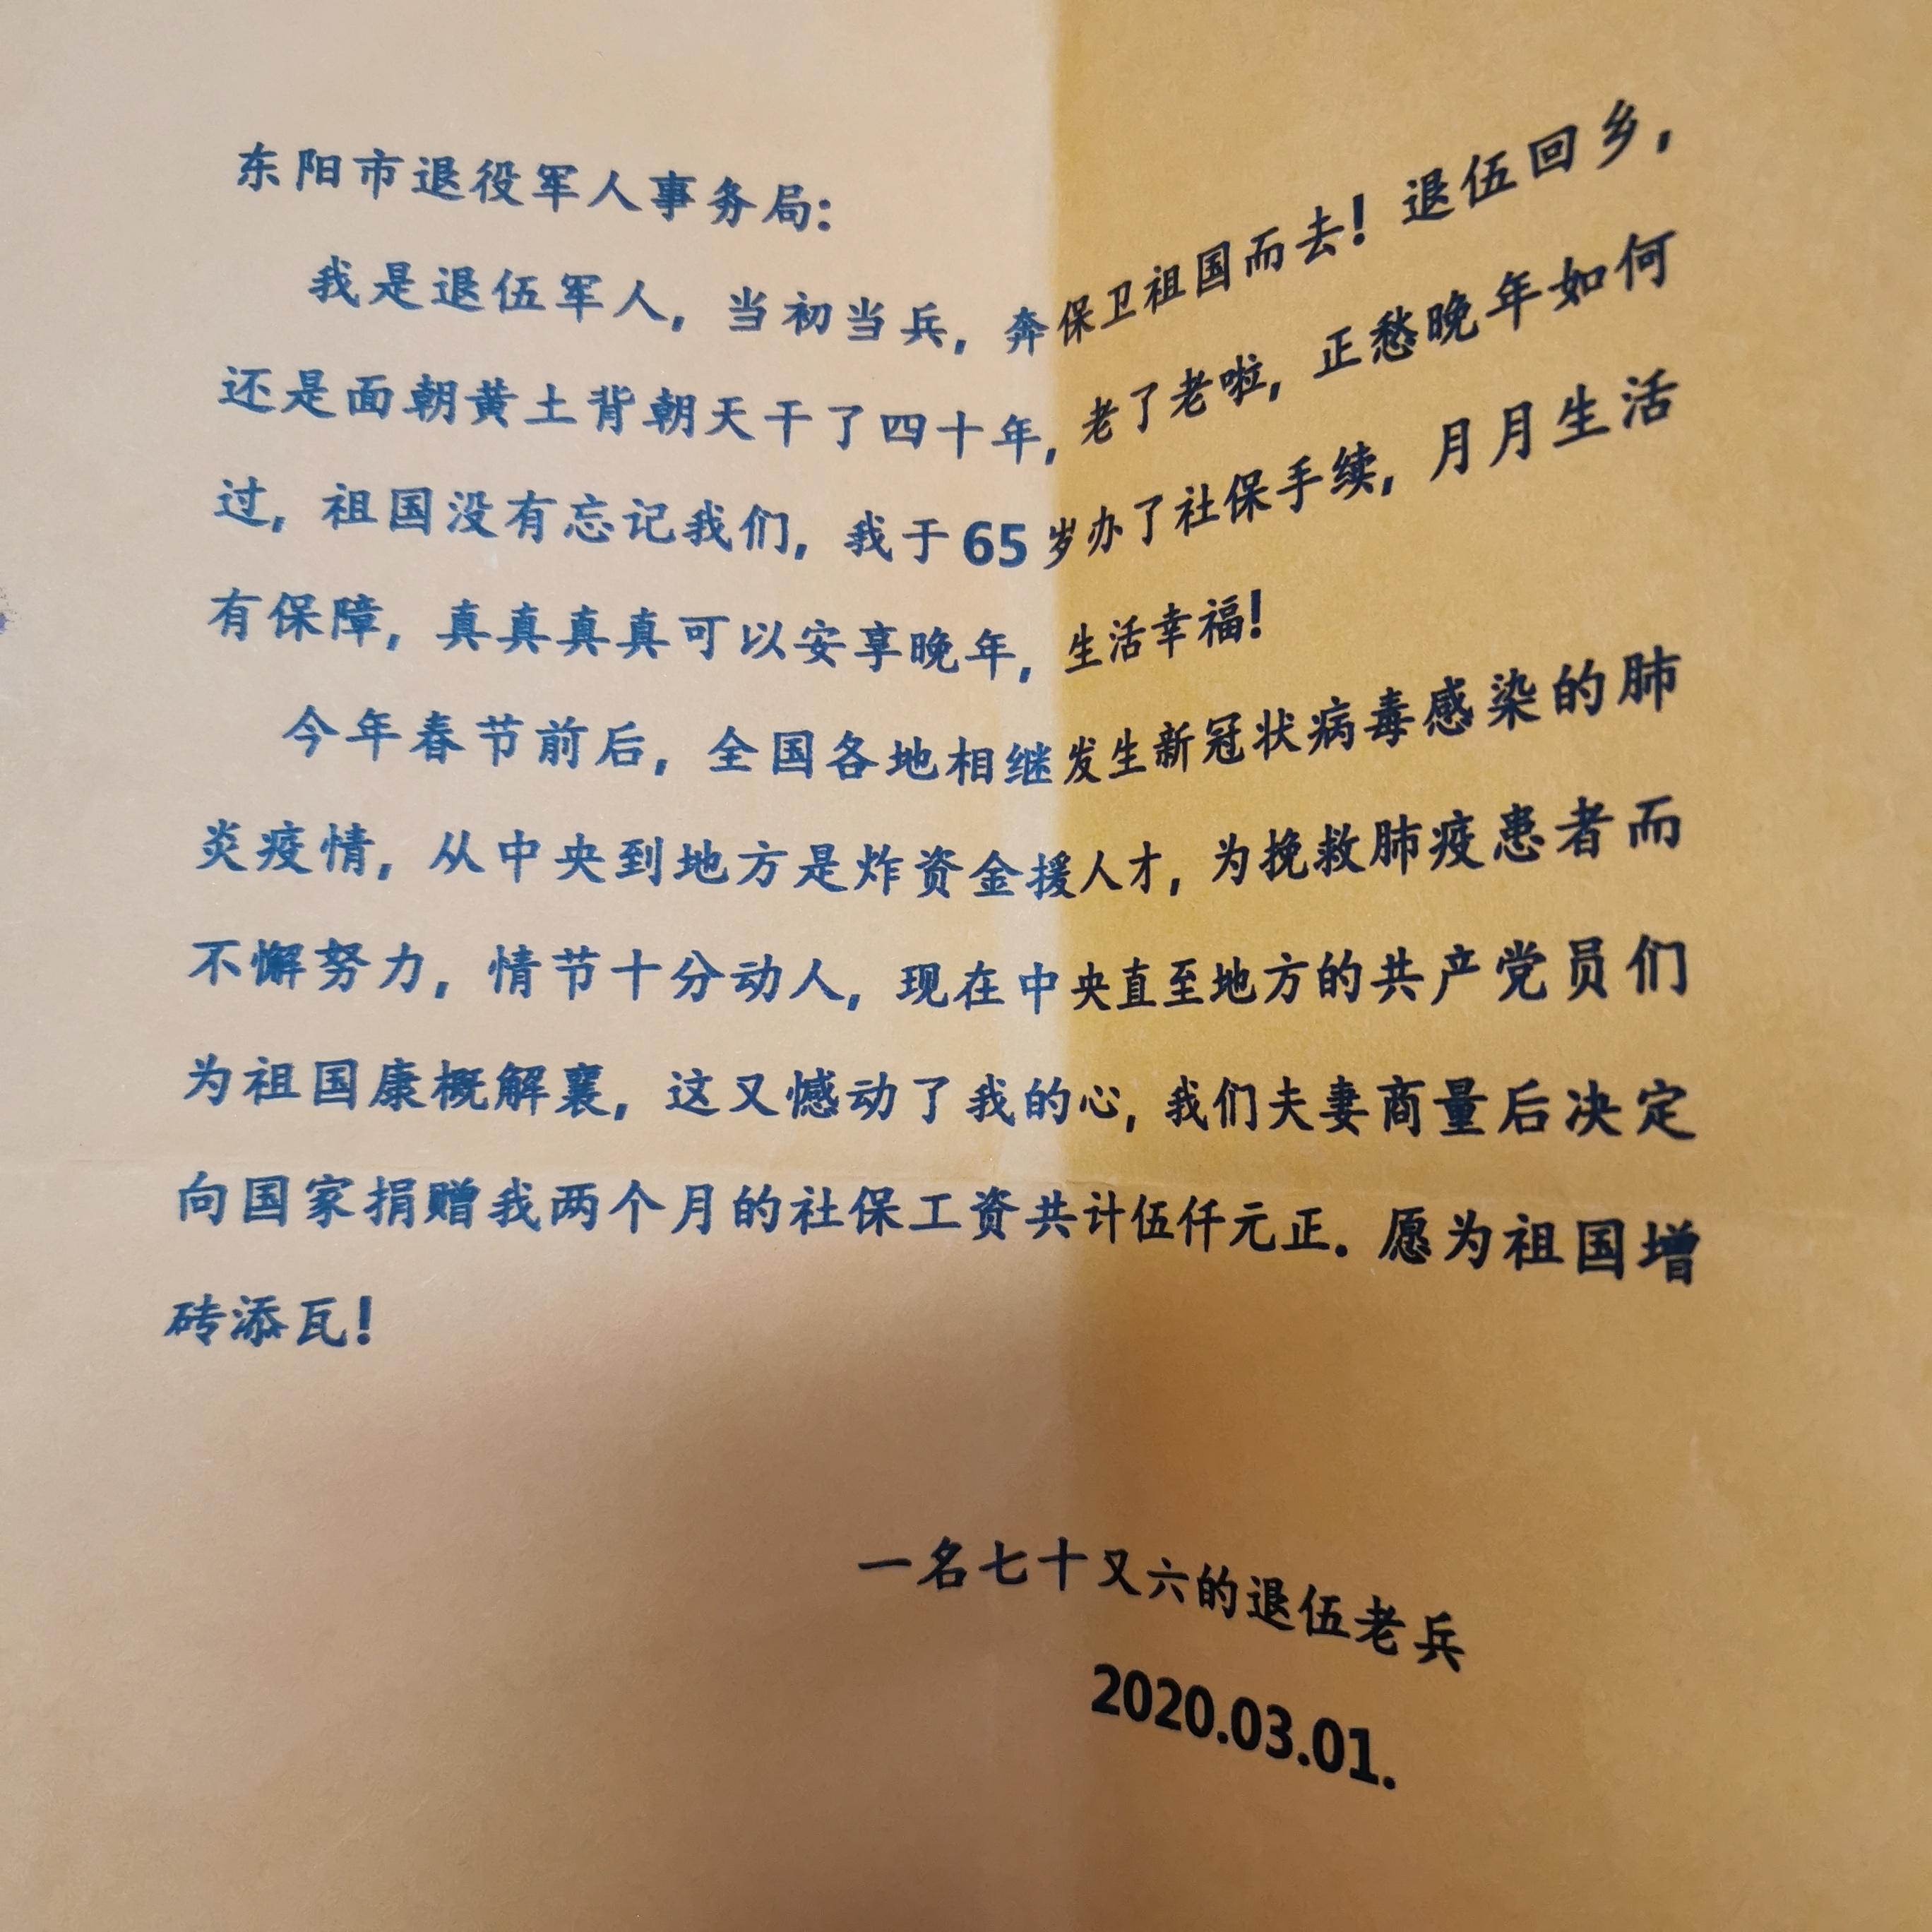 东阳市退役军人事务局:
我是退伍军人，当初当兵，奔保卫祖国而去！退伍回乡，
还是面朝黄土背朝天干了四十年，老了老啦，正愁晚年如何
过，祖国没有忘记我们，我于65岁办了社保手续，月月生活
有保障，真真真真可以安享晚年，生活幸福！
今年春节前后，全国各地相继发生新冠状病毒感染的肺
炎疫情，从中央到地方是炸资金援人才，为挽救肺疫患者而
不懈努力，情节十分动人，现在中央直至地方的共产党员们
为祖国康概解襄，这又憾动了我的心，我们夫妻商量后决定
向国家捐赠我两个月的社保工资共计伍仟元正。愿为祖国增
砖添瓦！
一名七十又六的退伍老兵
2020.03.01.